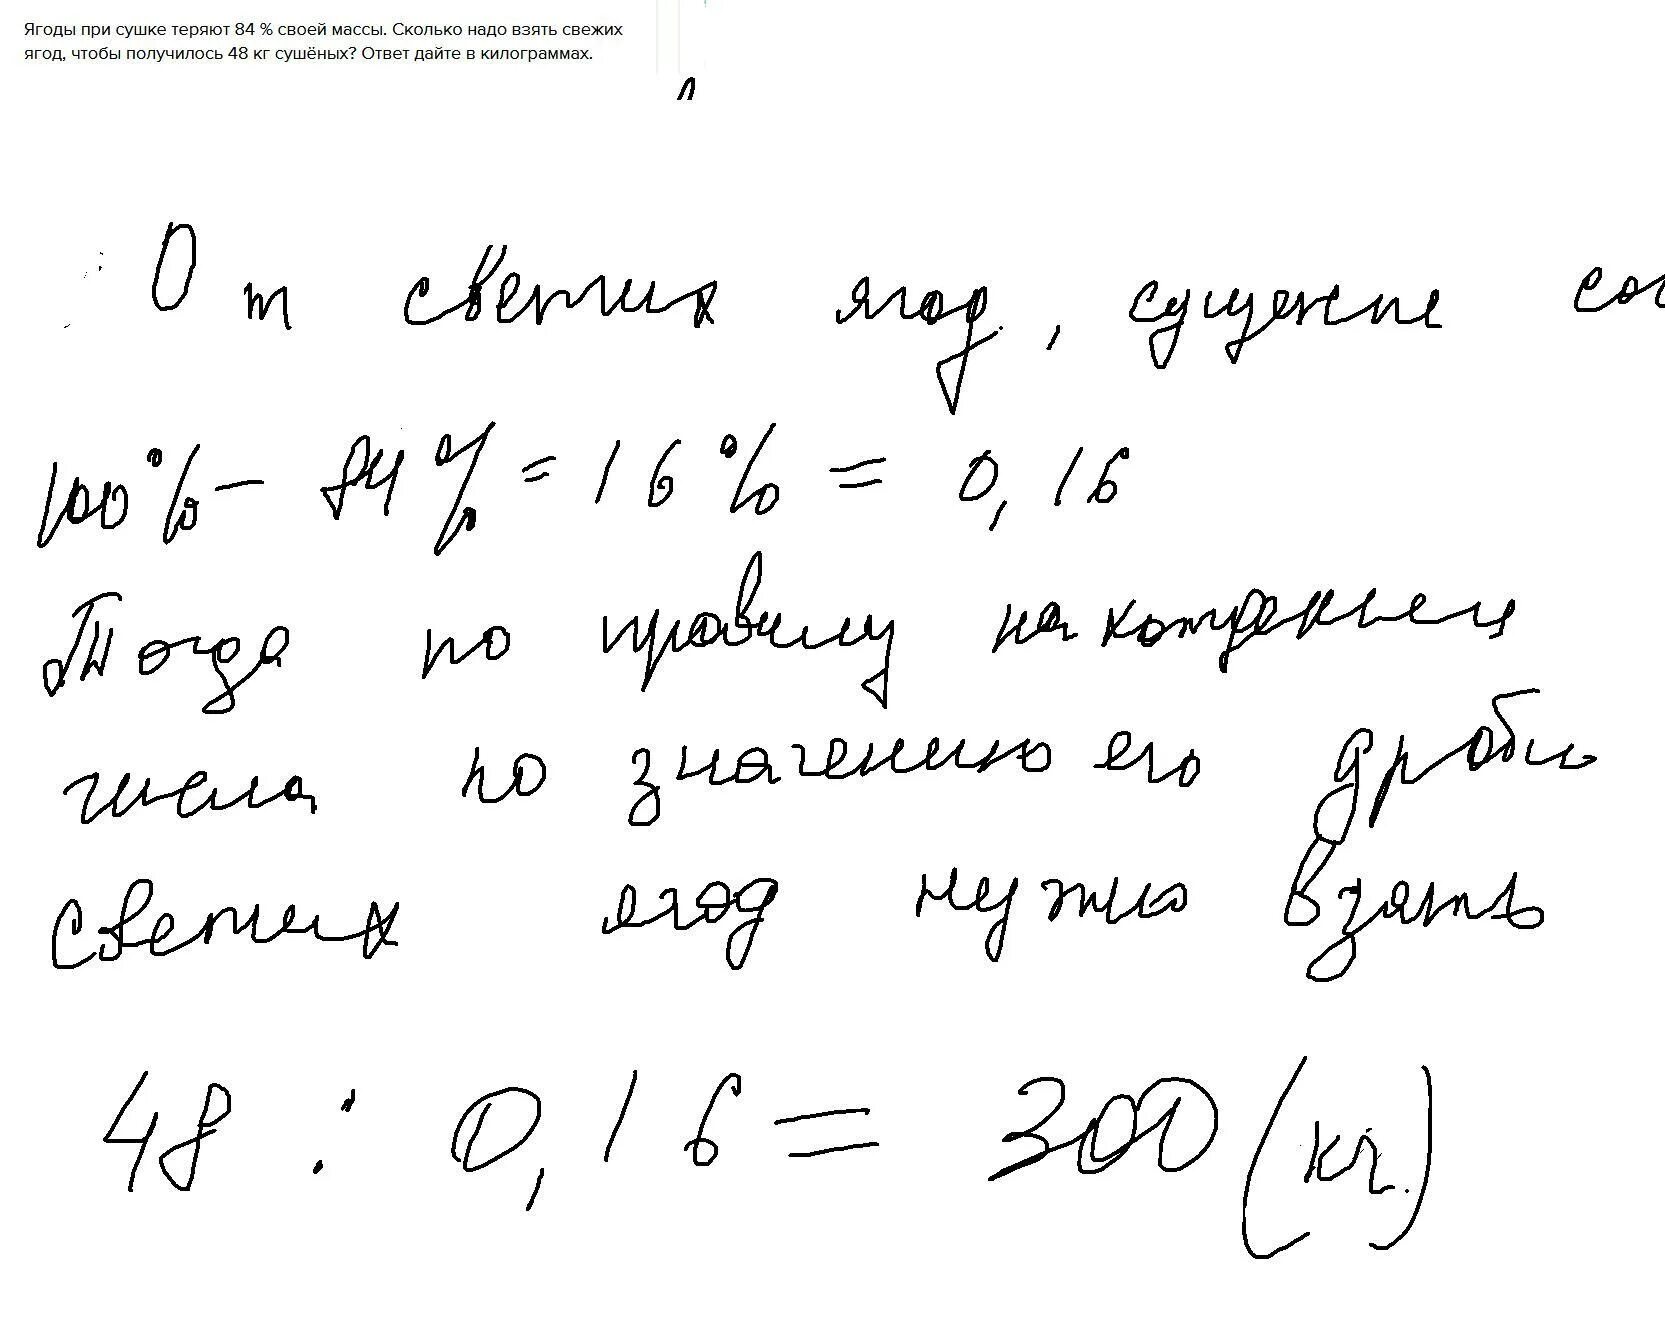 Ягоды при сушке теряют 84 % своей массы. Сколько надо взять свежих
ягод, чтобы получилось 48 кг сушёных? Ответ дайте в килограммах.
От свежих ягод, сушеные сос
100% - 84% = 16% = 0,16
Тогда по правилу нахождения
числа по значению его дроби
свежих ягод нужно взять
48 : 0,16 = 300 (кг.)